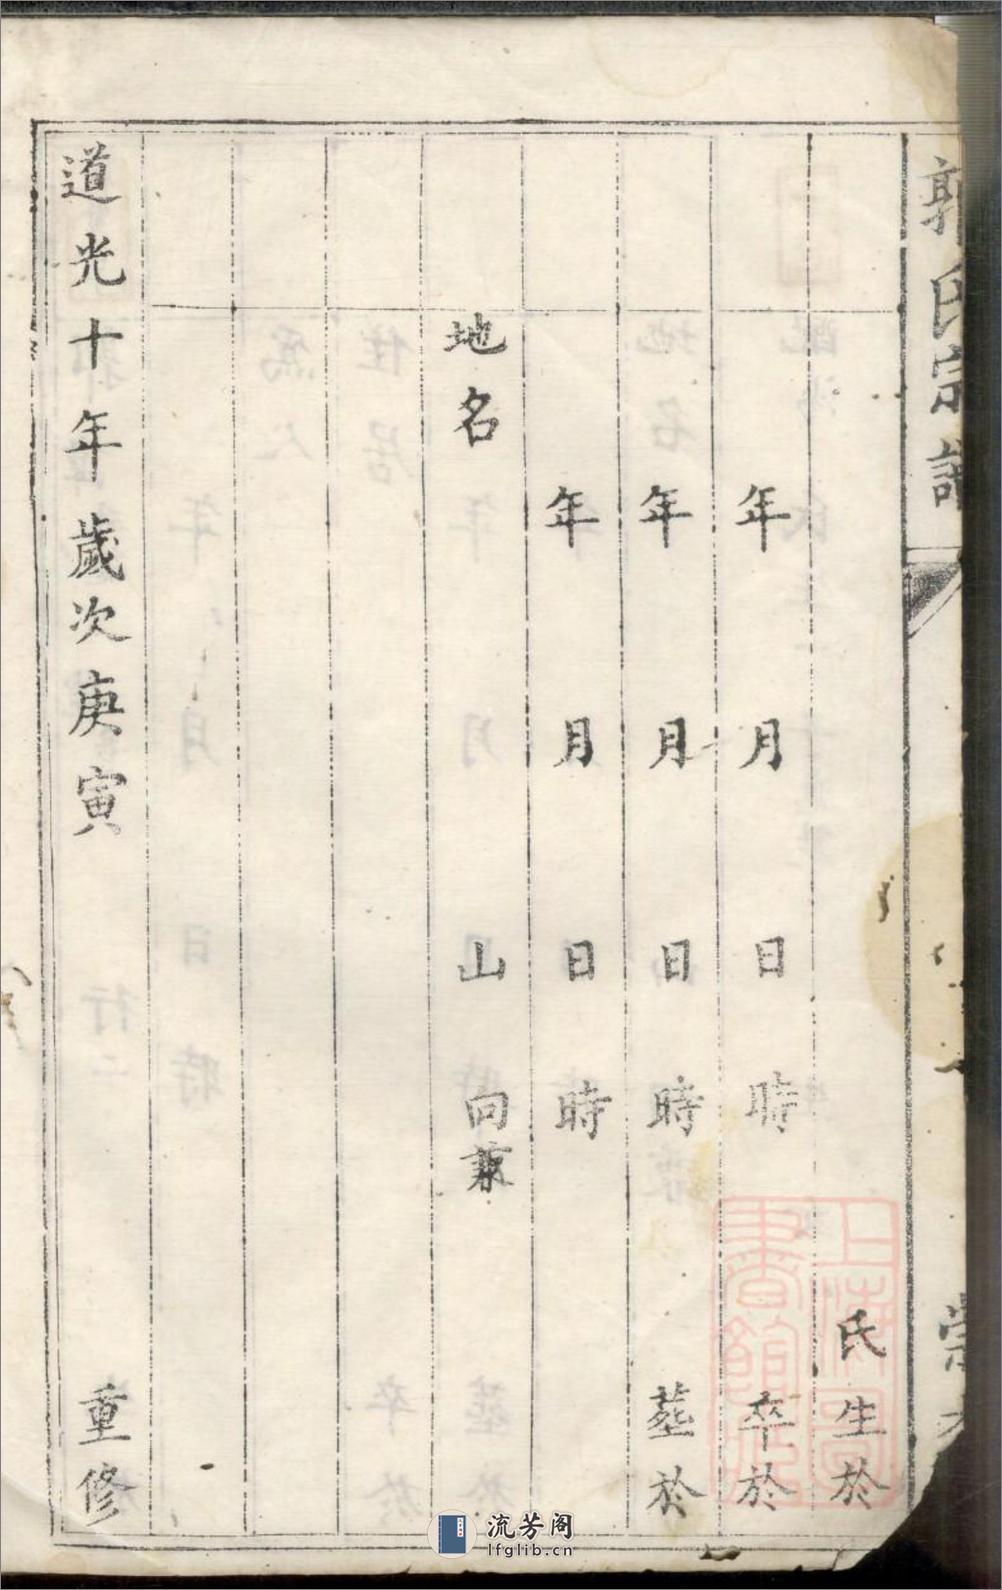 郭氏宗譜
氏生於
年月日時卒於
年月日時塟於
年月日時
地名山向兼
道光十年歲次庚寅重修
上海圖書館藏
流芳阁
lfglib.cn